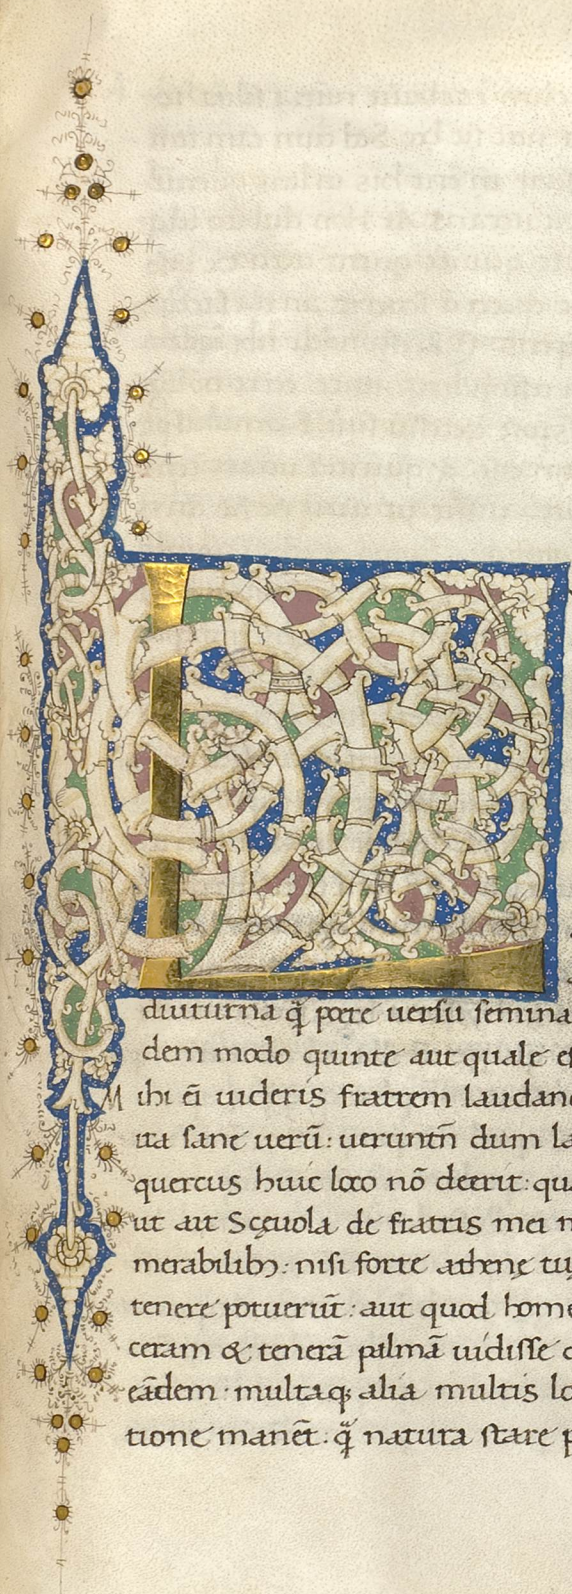 L
diuturna q̃ poete uersu semina
dem modo quinte aut quale
Mihi ẽ uideris fratrem laudan
ita sane uerũ: ueruntñ dum
quercus huic loco nõ deerit:
ut ait Scęuola de fratris mei
merabilibꝫ: nisi forte athenę
tenere potuerũt: aut quod
ceram & tenerã palmã uidisse
eãdem: multaqꝫ alia multis
tione manẽt. q̃ natura stare